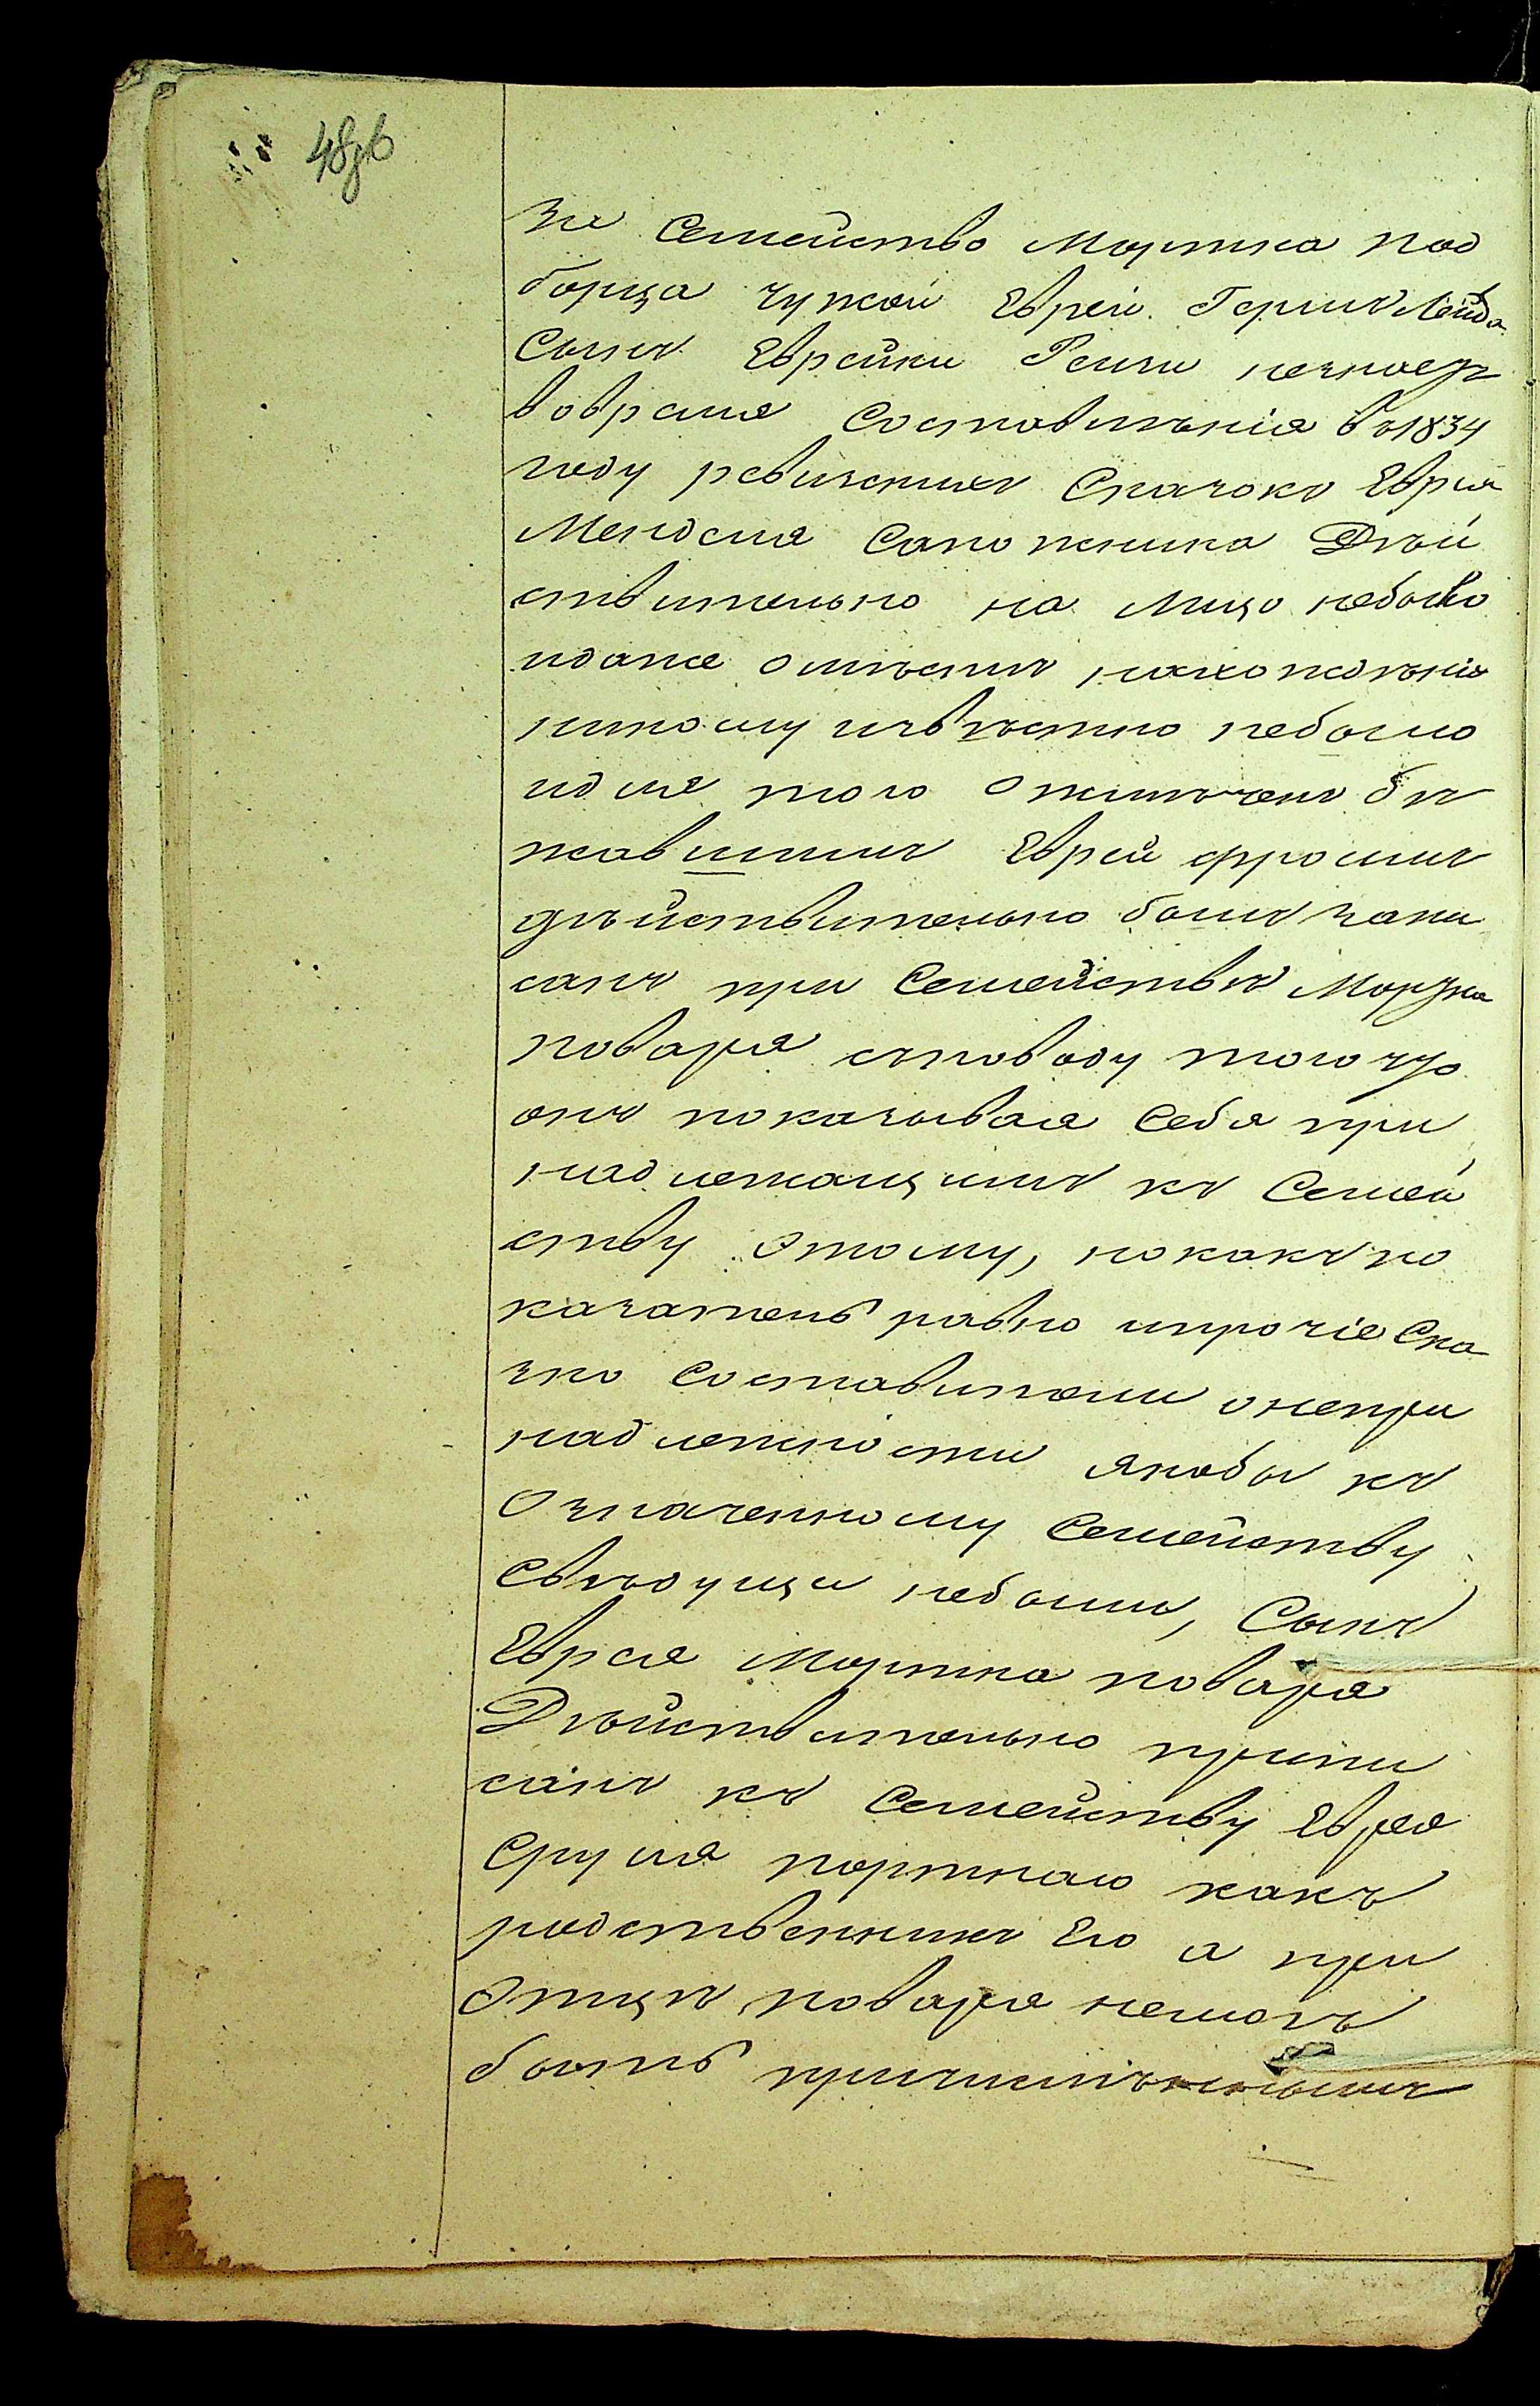 48зв
же Семейство Мортка под
борца чужой Еврей. Герш Лейба
Сынъ Еврейки Рейзи
вовремя Составлѣнія въ 1834
году ревизскихъ Сказокъ Еврея
Менделя Сапожника Дѣй
ствительно на Лицо небыло
идаже омѣстѣ нахождѣнія
никому извѣстно небыло
идля того отмѣченъ бѣ
жавшимъ Еврей Фроимъ
дѣйствительно былъ запи
санъ при Семействѣ Мортка
поваря споводу того что
онъ показывая Себя при
надлежащимъ къ Семей
ству этому, но какъ по
казатель равно ипрочіе Ска
зко Составители онепри
надлежности якобы къ
Означенному Семейству
Свѣдущи небыли, Сынъ
Еврея Мортка поваря
Дѣйствительно припи
санъ къ Семейству Еврея
Сруля портнаго какъ
родственникъ Его а при
Отцѣ поваря немогъ
быть причислѣннымъ